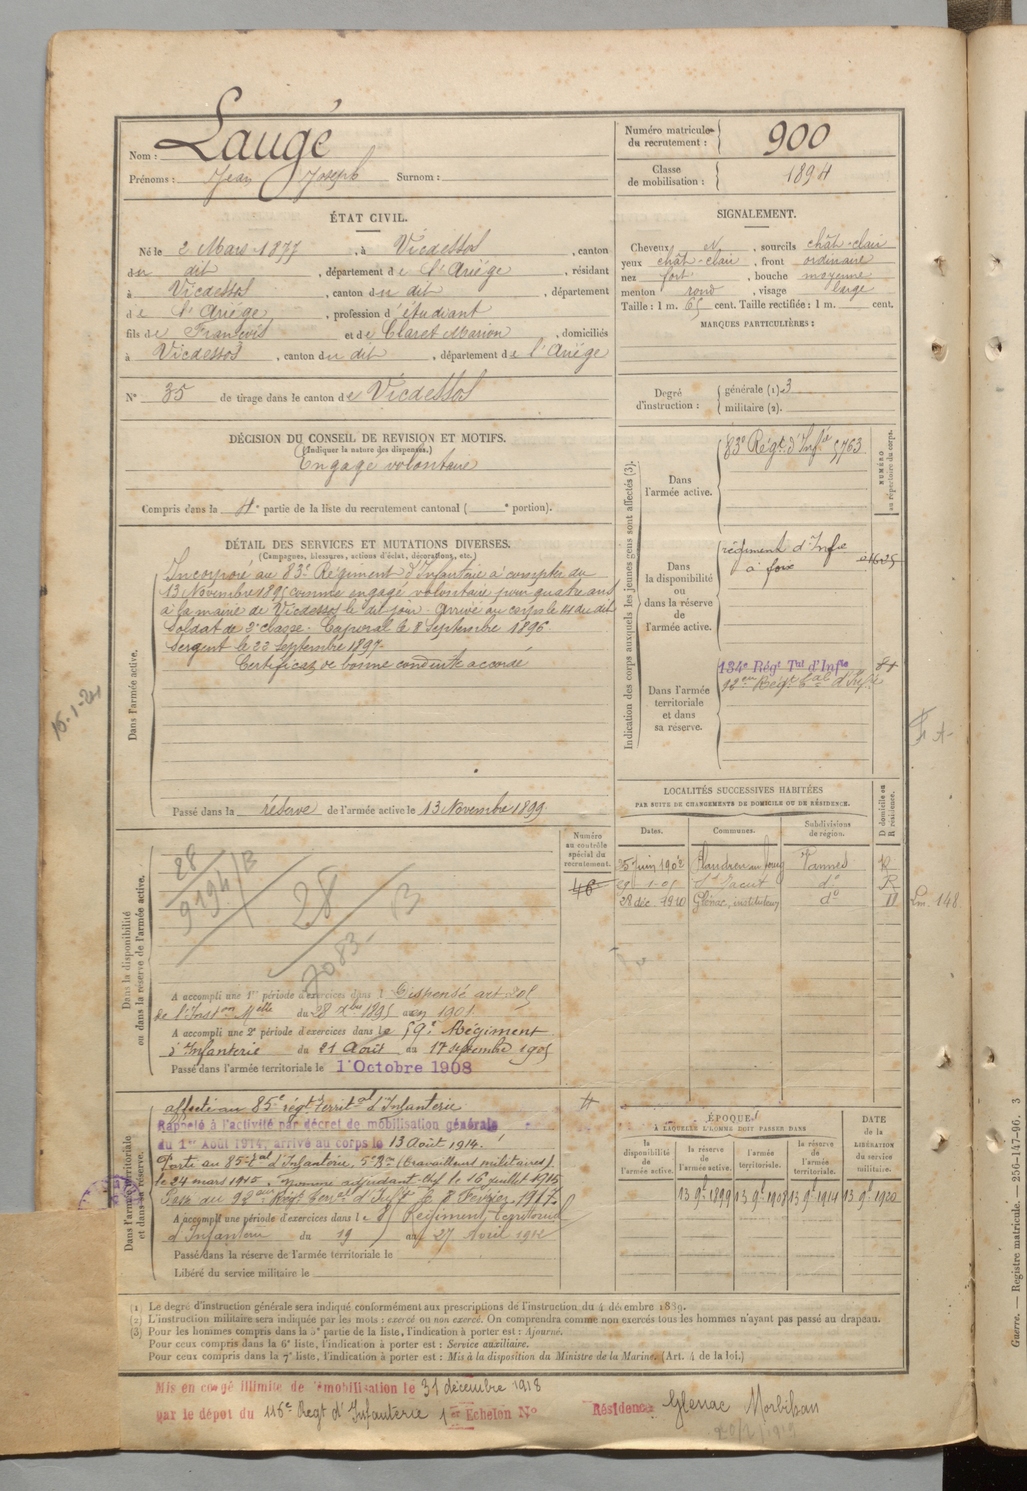 Nom : Laugé
Prénoms : Jean Joseph Surnom :
Numéro matricule du recrutement : 900
Classe de mobilisation : 1894
ÉTAT CIVIL.
Né le 2 Mars 1877, à Vicdessos, canton
du dit, département de l'Ariége, résidant
à Vicdessos, canton du dit, département
de l'Ariége, profession d'étudiant
fils de François et de Claret Marion, domiciliés
à Vicdessos, canton du dit, département de l'Ariége
N° 35 de tirage dans le canton de Vicdessos
SIGNALEMENT.
Cheveux N, sourcils chât-clair
yeux chât-clair, front ordinaire
nez fort, bouche moyenne
menton rond, visage large
Taille : 1 m. 65 cent. Taille rectifiée : 1 m. cent.
MARQUES PARTICULIÈRES :
Degré d'instruction : générale (1). 3
militaire (2).
DÉCISION DU CONSEIL DE REVISION ET MOTIFS.
(Indiquer la nature des dispenses.)
Engagé volontaire
Compris dans la 4e partie de la liste du recrutement cantonal ( e portion).
DÉTAIL DES SERVICES ET MUTATIONS DIVERSES.
(Campagnes, blessures, actions d'éclat, décorations, etc.)
Dans l'armée active.
Incorporé au 83e Régiment d'Infanterie à compter du
13 Novembre 1895 comme engagé volontaire pour quatre ans
à la mairie de Vicdessos le dit jour. Arrivé au corps le 14 du dit
Soldat de 2e classe. Caporal le 8 Septembre 1896.
Sergent le 23 Septembre 1897.
Certificat de bonne conduite accordé
Passé dans la réserve de l'armée active le 13 Novembre 1899.
15-1-21
Indication des corps auxquels les jeunes gens sont affectés (3).
NUMÉRO au répertoire du corps.
Dans l'armée active.
83e Régt d'Infie 5763
Dans la disponibilité ou dans la réserve de l'armée active.
régiment d'Infie
à foix
Dans l'armée territoriale et dans sa réserve.
134e Régt Tal d'Infie
92eme Régt Tal d'Infie
LOCALITÉS SUCCESSIVES HABITÉES
PAR SUITE DE CHANGEMENTS DE DOMICILE OU DE RÉSIDENCE.
Dates. Communes. Subdivisions de région. D domicile ou R résidence.
25 juin 1902 Vannes R
St Jacut do R
28 déc. 1910 Glénac, instituteur do D
148
Dans la disponibilité ou dans la réserve de l'armée active.
Numéro au contrôle spécial du recrutement.
46
28
9194/B
28
B
7083
A accompli une 1re période d'exercices dans l Dispensé art 205
de l'Inston Melle du 28 Xbre 1895 en 1901
A accompli une 2e période d'exercices dans le 59e Régiment
d'Infanterie du 21 Août au 17 septembre 1905
Passé dans l'armée territoriale le 1er Octobre 1908
Dans l'armée territoriale et dans sa réserve.
affecté au 85e régt territal d'Infanterie
Rappelé à l'activité par décret de mobilisation générale
du 1er Août 1914, arrivé au corps le 13 Août 1914.
Passé au 85e tal d'Infanterie, 5e Bon (travailleurs militaires).
le 24 mars 1915. Nommé adjudant Chef le 16 juillet 1915
Passé au 92eme Régt Terral d'Inft le 8 Février 1917.
A accompli une période d'exercices dans le 85 Régiment Territorial
d'Infanterie du 19 au 27 Avril 1912
Passé dans la réserve de l'armée territoriale le
Libéré du service militaire le
ÉPOQUES
À LAQUELLE L'HOMME DOIT PASSER DANS
la disponibilité de l'armée active. la réserve de l'armée active. l'armée territoriale. la réserve de l'armée territoriale.
DATE de la LIBÉRATION du service militaire.
13 9e 1899 13 9e 1908 13 9e 1914 13 9e 1920
(1) Le degré d'instruction générale sera indiqué conformément aux prescriptions de l'instruction du 4 décembre 1889.
(2) L'instruction militaire sera indiquée par les mots : exercé ou non exercé. On comprendra comme non exercés tous les hommes n'ayant pas passé au drapeau.
(3) Pour les hommes compris dans la 5e partie de la liste, l'indication à porter est : Ajourné.
Pour ceux compris dans la 6e liste, l'indication à porter est : Service auxiliaire.
Pour ceux compris dans la 7e liste, l'indication à porter est : Mis à la disposition du Ministre de la Marine. (Art. 4 de la loi.)
Mis en congé illimité de démobilisation le 31 décembre 1918
par le dépôt du 116e Regt d'Infanterie 1er Echelon N°
Résidence Glenac Morbihan
Guerre. — Registre matricule. — 256-147-96. 3